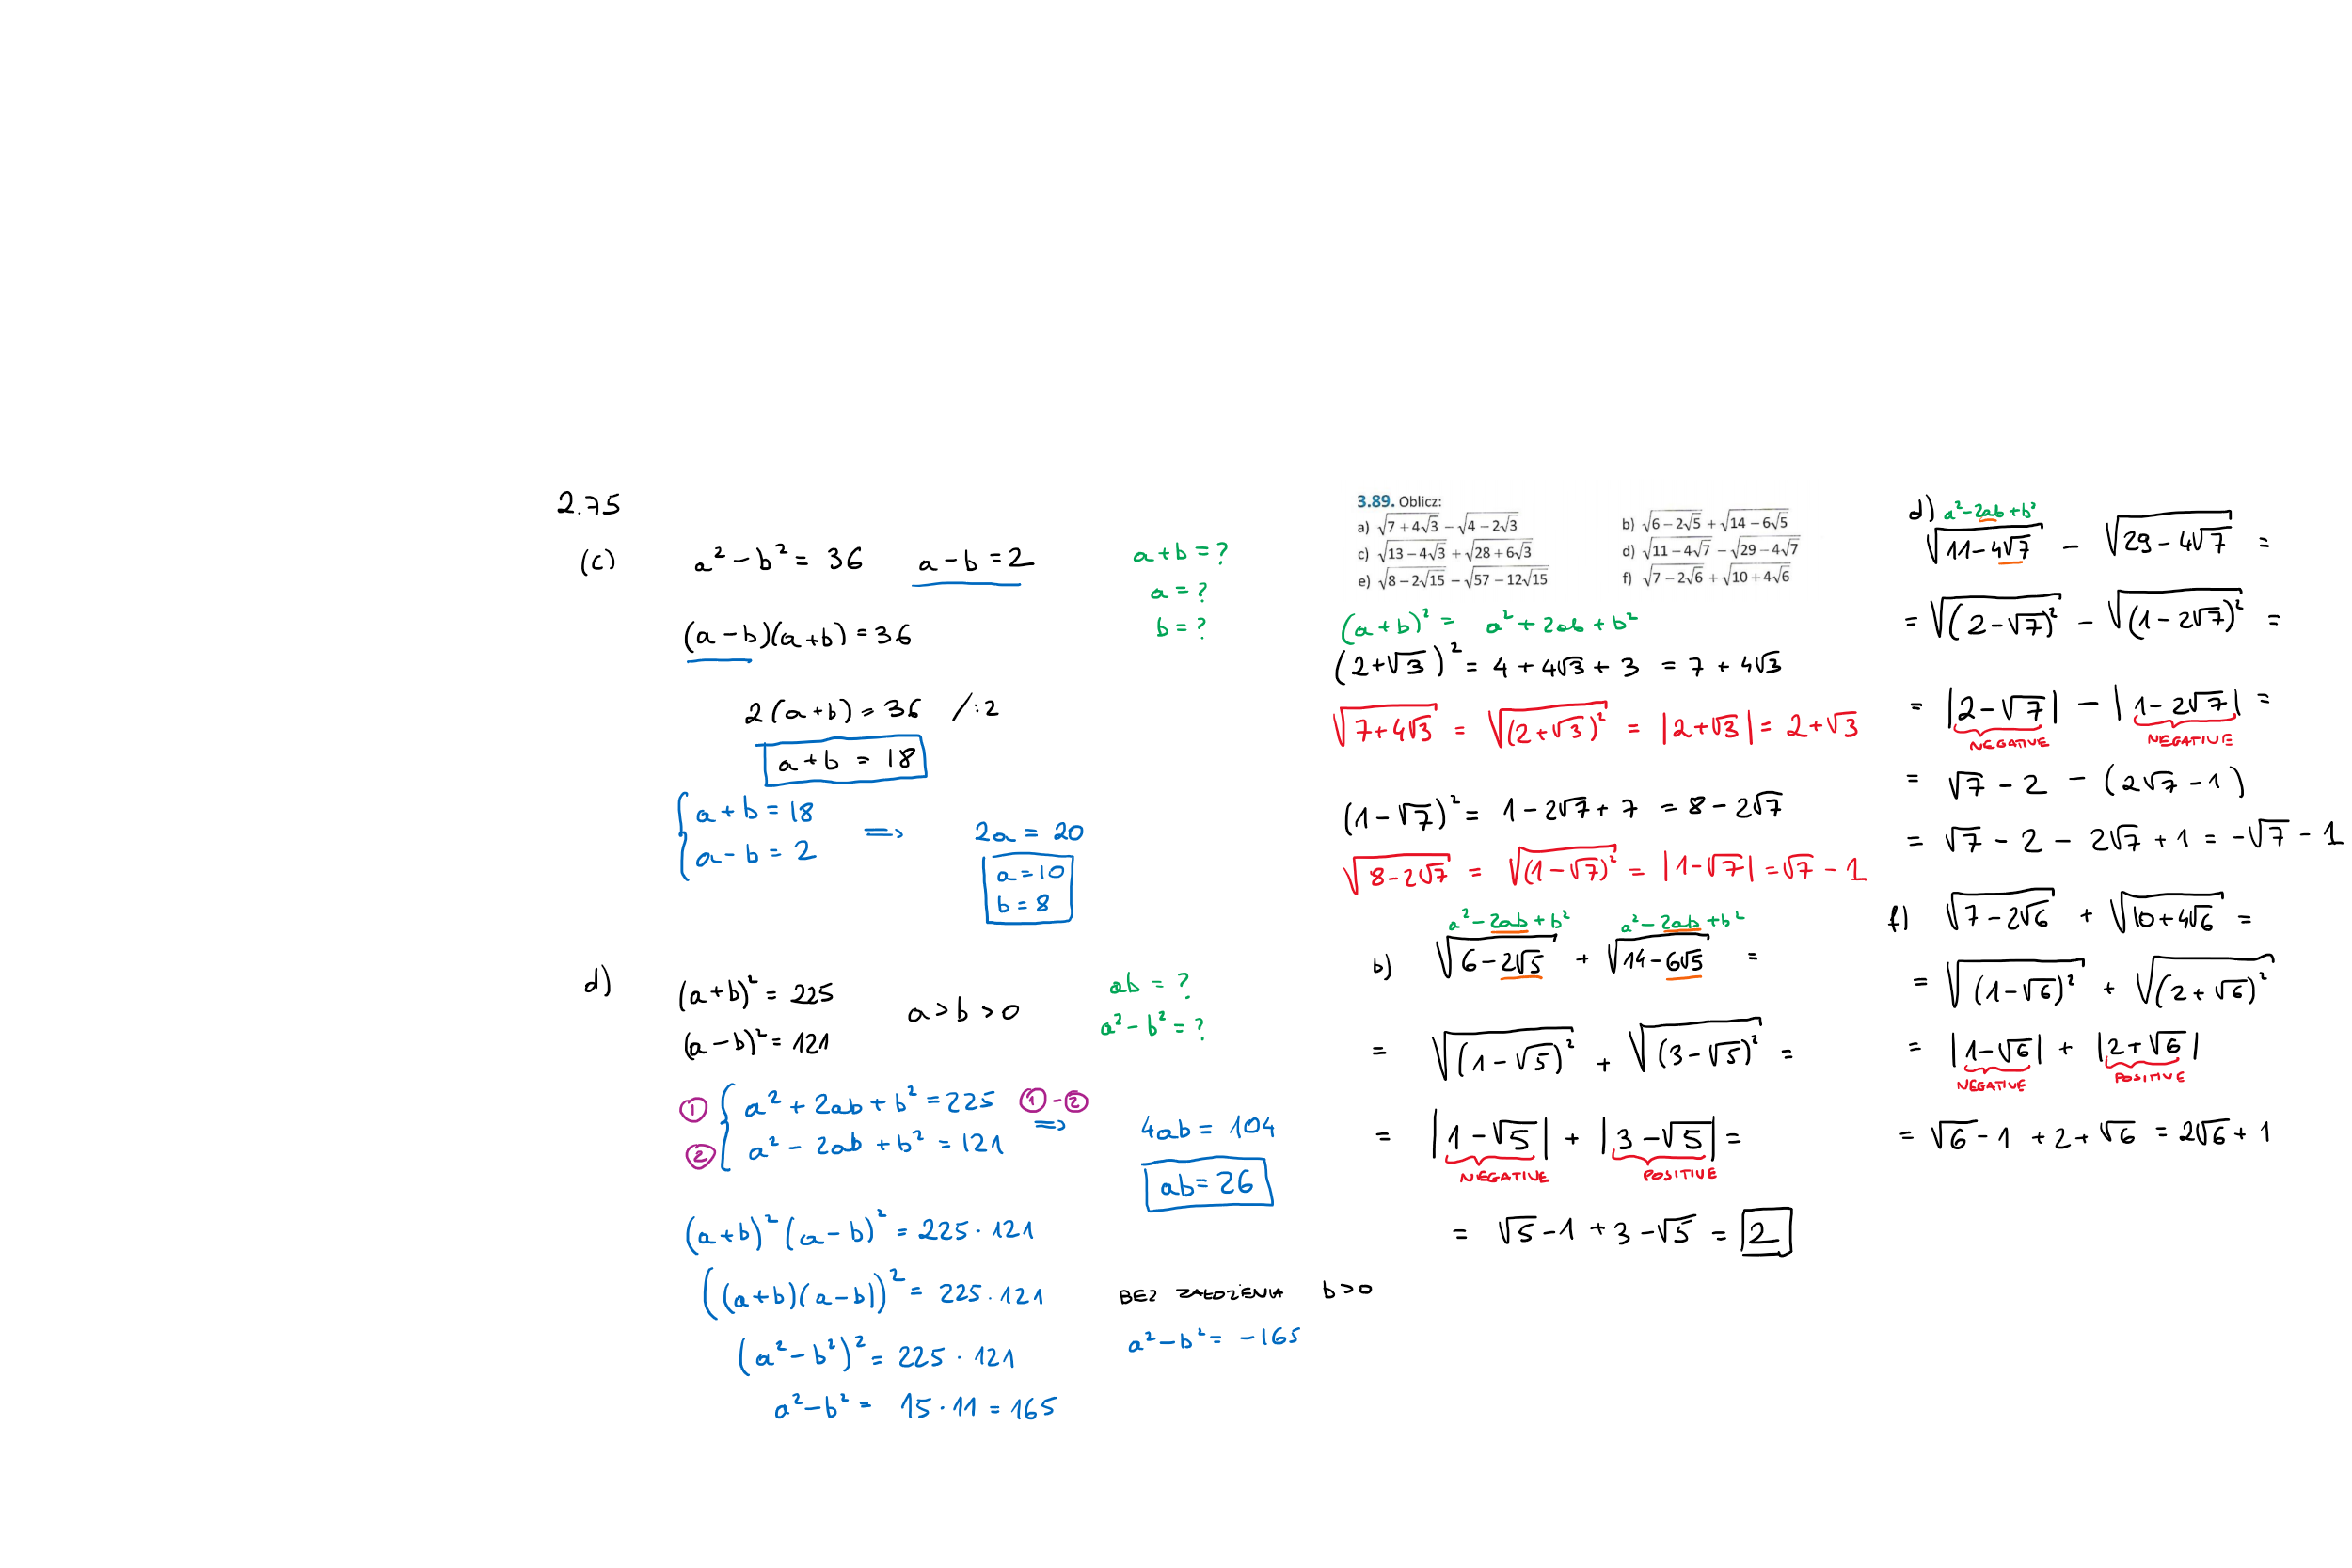 2.75
(c) a² − b² = 36 a − b = 2 a + b = ?
a = ?
b = ?
(a − b)(a + b) = 36
2(a + b) = 36 /:2
a + b = 18
a + b = 18
a − b = 2
=> 2a = 20
a = 10
b = 8
d) (a + b)² = 225 a > b > 0 ab = ?
(a − b)² = 121 a² − b² = ?
① a² + 2ab + b² = 225 ① - ②
② a² − 2ab + b² = 121 =>
4ab = 104
ab = 26
(a + b)² (a − b)² = 225 · 121
((a + b)(a − b))² = 225 · 121
(a² − b²)² = 225 · 121
a² − b² = 15 · 11 = 165
BEZ ZAŁOŻENIA b > 0
a² − b² = −165
3.89. Oblicz:
a) √(7 + 4√3) − √(4 − 2√3) b) √(6 − 2√5) + √(14 − 6√5)
c) √(13 − 4√3) + √(28 + 6√3) d) √(11 − 4√7) − √(29 − 4√7)
e) √(8 − 2√15) − √(57 − 12√15) f) √(7 − 2√6) + √(10 + 4√6)
(a + b)² = a² + 2ab + b²
(2 + √3)² = 4 + 4√3 + 3 = 7 + 4√3
√(7 + 4√3) = √((2 + √3)²) = |2 + √3| = 2 + √3
(1 − √7)² = 1 − 2√7 + 7 = 8 − 2√7
√(8 − 2√7) = √((1 − √7)²) = |1 − √7| = √7 − 1
a² − 2ab + b² a² − 2ab + b²
b) √(6 − 2√5) + √(14 − 6√5) =
= √((1 − √5)²) + √((3 − √5)²) =
= |1 − √5| + |3 − √5| =
NEGATIVE POSITIVE
= √5 − 1 + 3 − √5 = 2
d) a² − 2ab + b²
√(11 − 4√7) − √(29 − 4√7) =
= √((2 − √7)²) − √((1 − 2√7)²) =
= |2 − √7| − |1 − 2√7| =
NEGATIVE NEGATIVE
= √7 − 2 − (2√7 − 1)
= √7 − 2 − 2√7 + 1 = −√7 − 1
f) √(7 − 2√6) + √(10 + 4√6) =
= √((1 − √6)²) + √((2 + √6)²)
= |1 − √6| + |2 + √6|
NEGATIVE POSITIVE
= √6 − 1 + 2 + √6 = 2√6 + 1